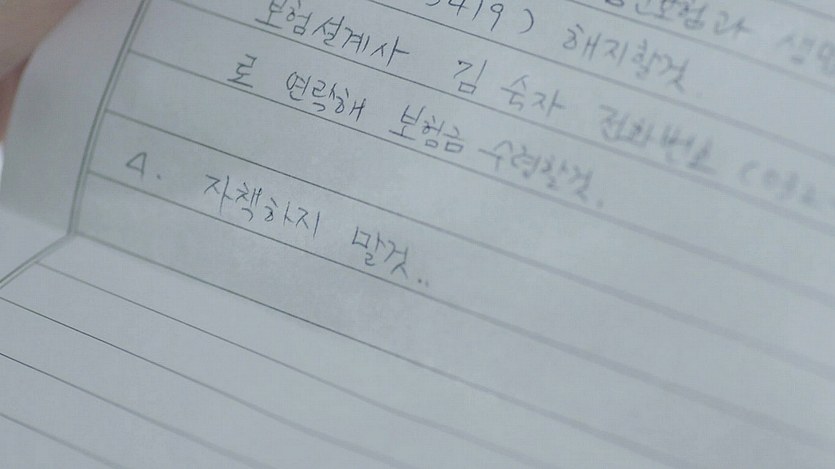 3419) 해지할것.
보험설계사 김 숙자 전화번호 (032
로 연락해 보험금 수령할것.
4. 자책하지 말것..